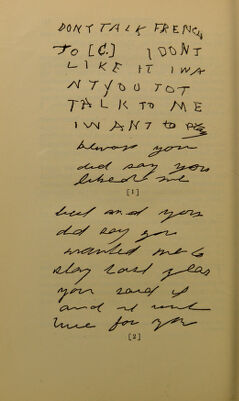 DONT TALK FRENCH
TO [C.] I DONT
LIKE IT I WA
NT YOU TO T
TALK TO ME
I WANT to play
always you
did say you
liked me
[1]
but and you
did say you
wanted me to
stay last year
you said I
and it
for you
[2]